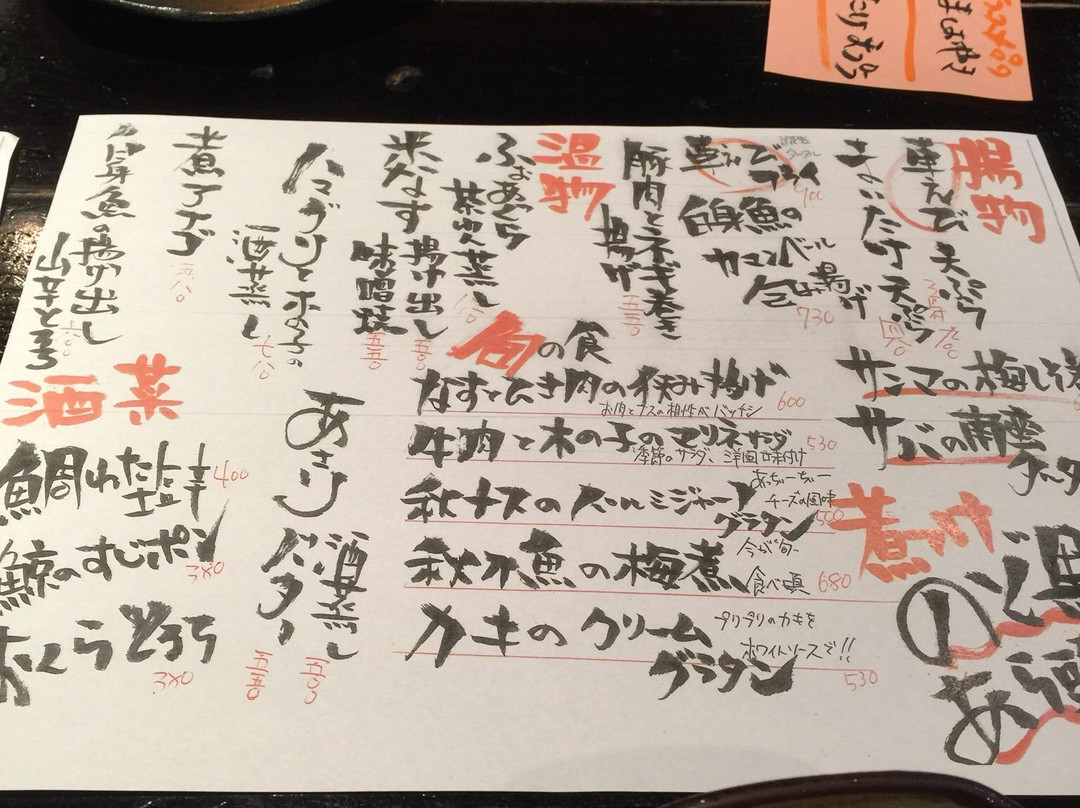 揚物
車えび天ぷら
3尾
まいたけ天ぷら
車えびフライ
900
白身魚の
カマンベール
包み揚げ
730
豚肉とネギ巻き
揚げ
五五〇
温物
ふぉあぐら
茶わん蒸し
米なす揚げ出し
味噌焼
五五〇
ハマグリと木の子の
酒蒸し
七八〇
煮アナゴ
白身魚の揚げ出し
山芋とろろ
旬の食
なすとひき肉の挟み揚げ
600
お肉とナスの相性ベバッチシ
牛肉と木の子のマリネサラダ
530
季節のサラダ、洋風味付け
秋ナスのパルミジャーノ
グラタン
あっちぃーちぃー
チーズの風味
500
秋刀魚の梅煮
今が旬..
食べ頃
680
カキのクリーム
グラタン
プリプリのカキを
ホワイトソースで!!
530
あさり
酒蒸し
バター
五五〇
酒菜
鯛わた塩辛
400
鯨のすじポン
380
おくらとろろ
380
サンマの梅し
サバの南蛮
タ
煮つけ
あら